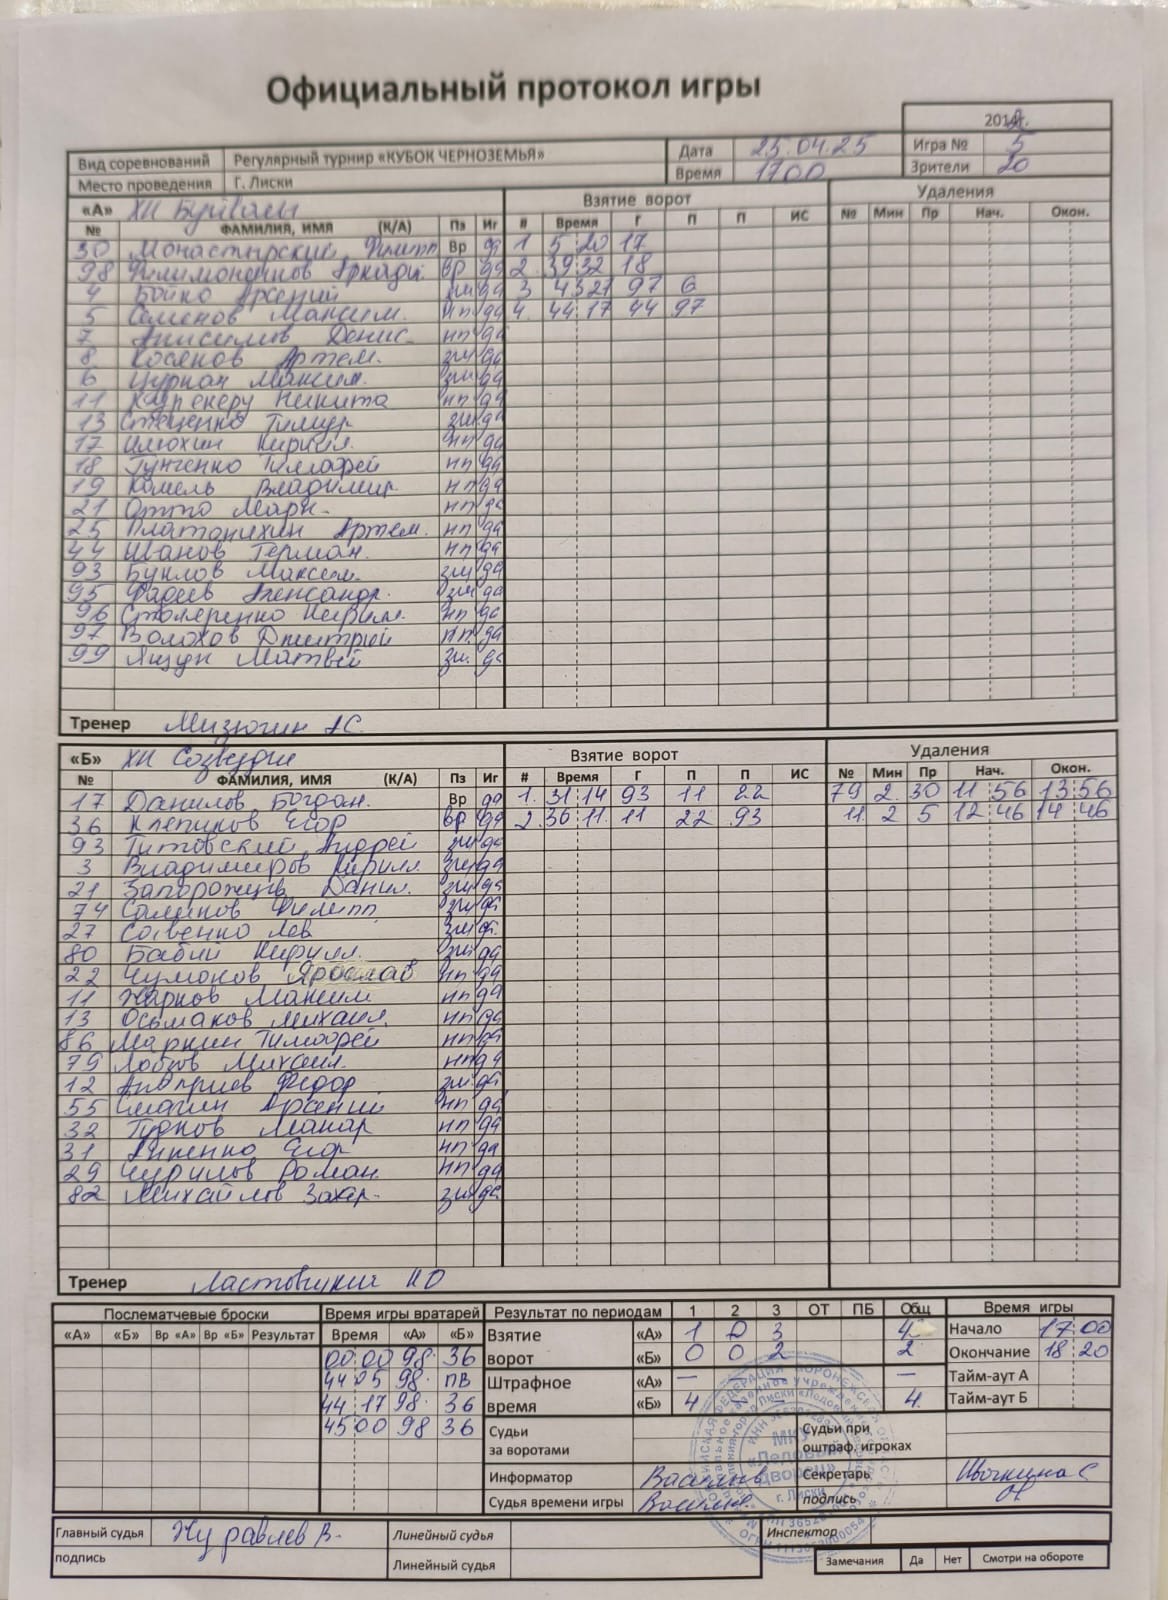 Официальный протокол игры
2012г.
Вид соревнований Регулярный турнир «КУБОК ЧЕРНОЗЕМЬЯ» Дата 25.04.25 Игра № 5
Место проведения Г. Лиски Время 17 00 Зрители 20
«А» ХК Буйволы Взятие ворот Удаления
№ ФАМИЛИЯ, ИМЯ (К/А) Пз Иг # Время Г П П ИС № Мин Пр Нач. Окон.
30 Монастырский Филипп Вр да 1 5 20 17
98 Филимоненков Аркадий Вр да 2. 39 32 18
4 Бойко Арсений зщ да 3 43 21 97 6
5 Семенов Максим. нп да 4. 44 17 44 97
7 Анисимов Денис. нп да
8 Косянов Артем. зщ да
6 Цуркан Максим. зщ да
11 Никита нп да
13 Стеценко Тимур зщ да
17 Илюхин Кирилл. нп да
18 Гунченко Тимофей нп да
19 Комель Владимир нп да
21 Отто Марк. нп да
25 Платонихин Артем. нп да
44 Иванов Герман. нп да
93 Буклов Максим. зщ да
95 Фадеев Александр. зщ да
96 Столяренко Кирилл. нп да
97 Волохов Дмитрий нп. да
99 Ящук Матвей зщ. да
Тренер Мизюгин АС.
«Б» ХК Созвездие Взятие ворот Удаления
№ ФАМИЛИЯ, ИМЯ (К/А) Пз Иг # Время Г П П ИС № Мин Пр Нач. Окон.
17 Данилов Богдан. Вр да 1. 31 14 93 11 22 79 2. 30 11 56 13 56
36 Клепиков Егор вр да 2. 36 11. 11 22 93 11. 2 5 12 46 14 46
93 Титовский Андрей зщ да
3 Владимиров Кирилл зщ да
21 Запорожцев Данил. зщ да
74 Саликов Филипп зщ да
27 Лев зщ да
80 Бабий Кирилл. зщ да
22 Чумаков Ярослав нп да
11 Жарков Максим нп да
13 Осьмаков Михаил. нп да
86 Маркин Тимофей нп да
79 Лобов Михаил. нп да
12 Федор зщ да
55 Смагин Арсений нп да
32 Гудков Макар нп да
31 Егор нп да
29 Чурилов Роман нп да
82 Михайлов Захар. зщ да
Тренер
Послематчевые броски Время игры вратарей Результат по периодам 1 2 3 ОТ ПБ Общ Время игры
«А» «Б» Вр «А» Вр «Б» Результат Время «А» «Б» Взятие ворот «А» 1 0 3 4 Начало 17 00
00 00 98 36 «Б» 0 0 2 2 Окончание 18 20
44 05 98 ПВ Штрафное время «А» — — — — Тайм-аут А
44 17 98 36 «Б» 4 — — 4. Тайм-аут Б
45 00 98 36 Судьи за воротами Судьи при оштраф. игроках
Информатор Секретарь
Судья времени игры подпись
МКУ «Ледовый дворец» г. Лиски
Главный судья Журавлев В. Линейный судья Инспектор
подпись Линейный судья Замечания Да Нет Смотри на обороте